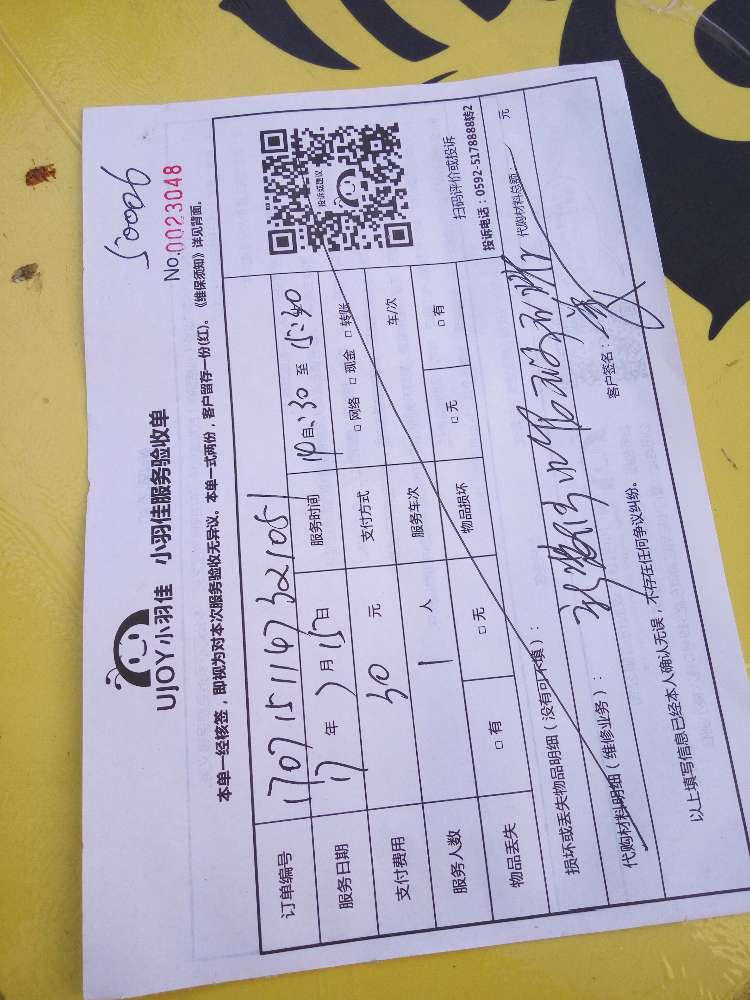 50006
No.0023048
UJOY小羽佳 小羽佳服务验收单
本单一经核签，即视为对本次服务验收无异议。本单一式两份，客户留存一份(红)。《维保须知》详见背面。
订单编号 1707151147321051
服务日期 17 年 7 月 15 日 服务时间 14 自:30 至 15:30
支付费用 30 元 支付方式 □ 网络 □ 现金 □ 转账
服务人数 1 人 服务车次 车/次
物品丢失 □ 有 □ 无 物品损坏 □ 无 □ 有
投诉或建议
扫码评价或投诉
投诉电话：0592-5178888转2
损坏或丢失物品明细（没有可不填）：
代购材料明细（维修业务）： 代购材料总额： 元
以上填写信息已经本人确认无误，不存在任何争议纠纷。 客户签名：